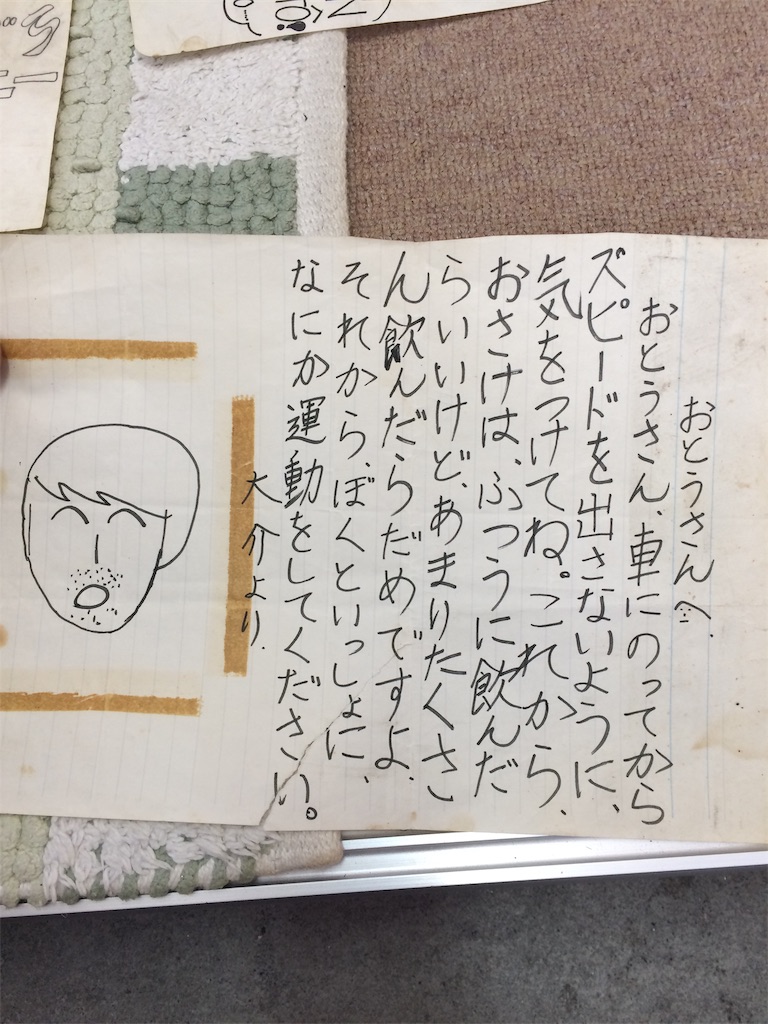 おとうさんへ.
おとうさん、車にのってから
ズピードを出さないように、
気をつけてね。これから、
おさけは、ふつうに飲んだ
らいいけど、あまりたくさ
ん飲んだらだめですよ、
それから、ぼくといっしょに、
なにか運動をしてください。
大介より.